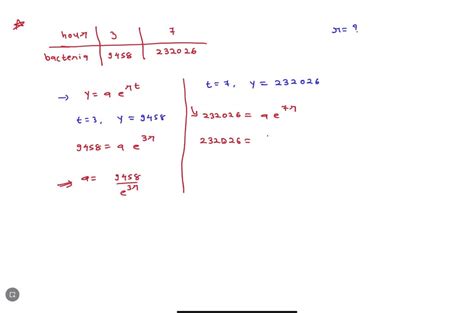 hour 3 7 r = ?
bacteria 9458 232026
→ y = a e^{rt}
t=3, y = 9458
9458 = a e^{3r}
⇒ a = 9458 / e^{3r}
t=7, y = 232026
↳ 232026 = a e^{7r}
232026 =